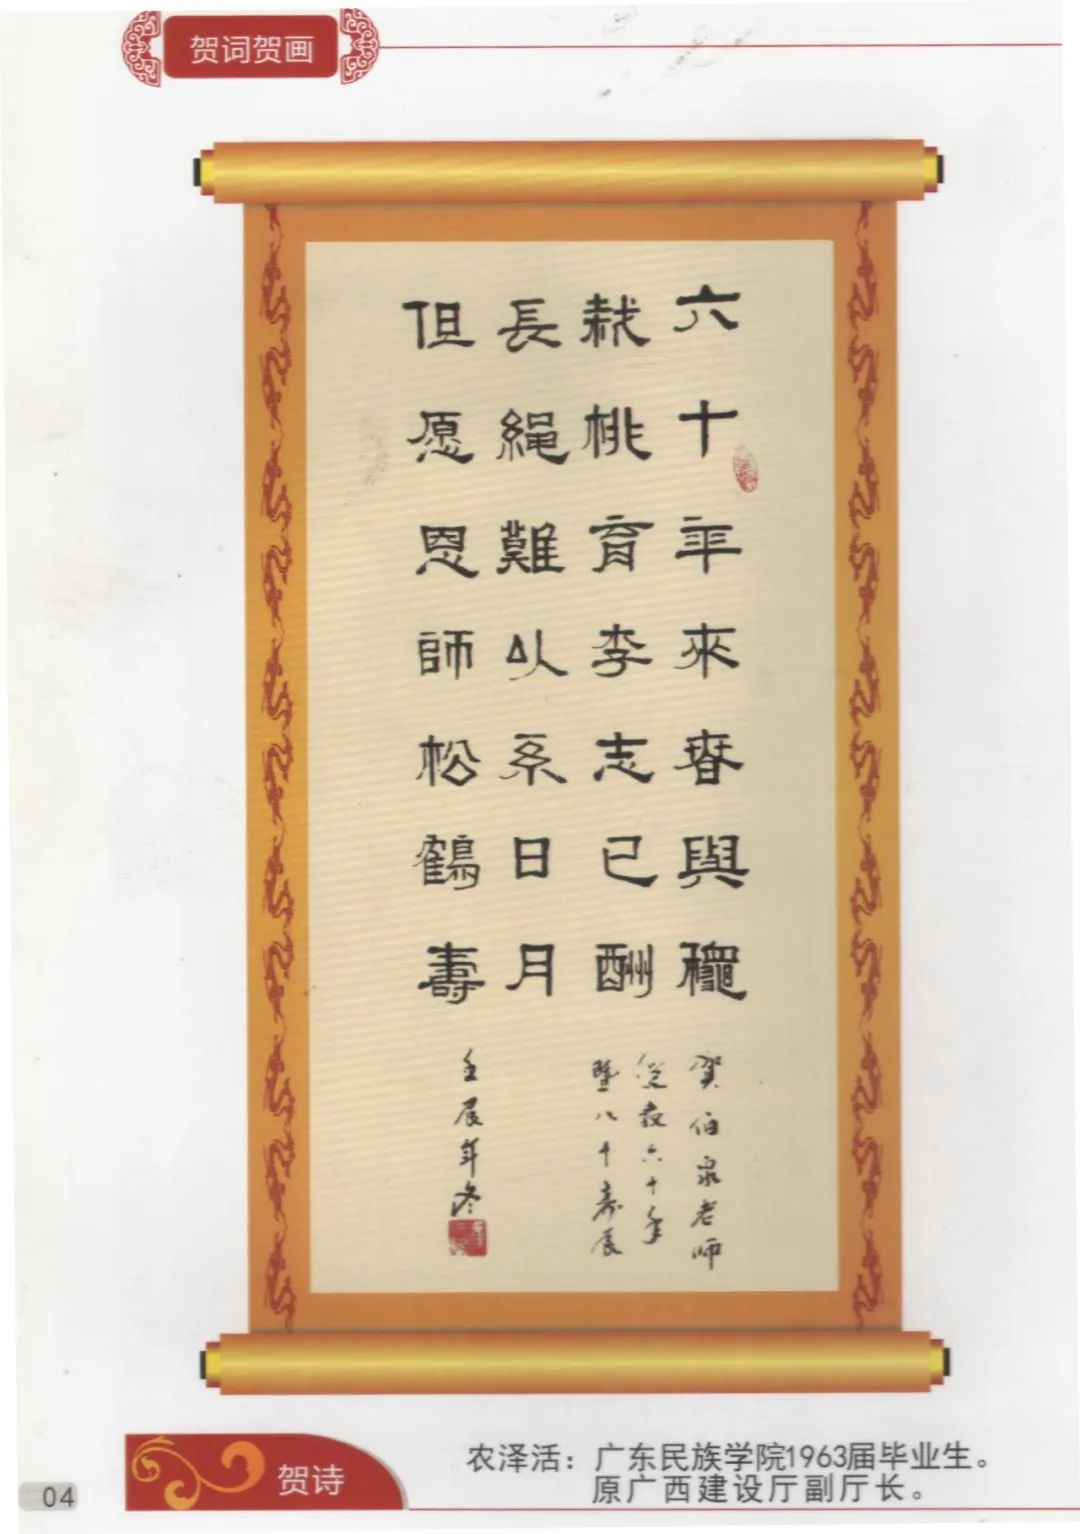 贺词贺画
六十年來春與穐
栽桃育李志已酬
長繩難以系日月
但愿恩師松鶴壽
賀伯泉老师
從教六十年
暨八十寿辰
壬辰年冬
贺诗
农泽活：广东民族学院1963届毕业生。
原广西建设厅副厅长。
04